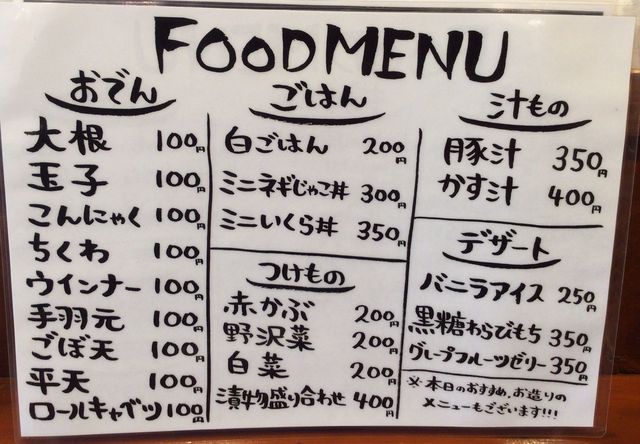 FOOD MENU
おでん
大根 100円
玉子 100円
こんにゃく 100円
ちくわ 100円
ウインナー 100円
手羽元 100円
ごぼ天 100円
平天 100円
ロールキャベツ 100円
ごはん
白ごはん 200円
ミニネギじゃこ丼 300円
ミニいくら丼 350円
つけもの
赤かぶ 200円
野沢菜 200円
白菜 200円
漬物盛り合わせ 400円
汁もの
豚汁 350円
かす汁 400円
デザート
バニラアイス 250円
黒糖わらびもち 350円
グレープフルーツゼリー 350円
※本日のおすすめ、お造りの
メニューもございます!!!